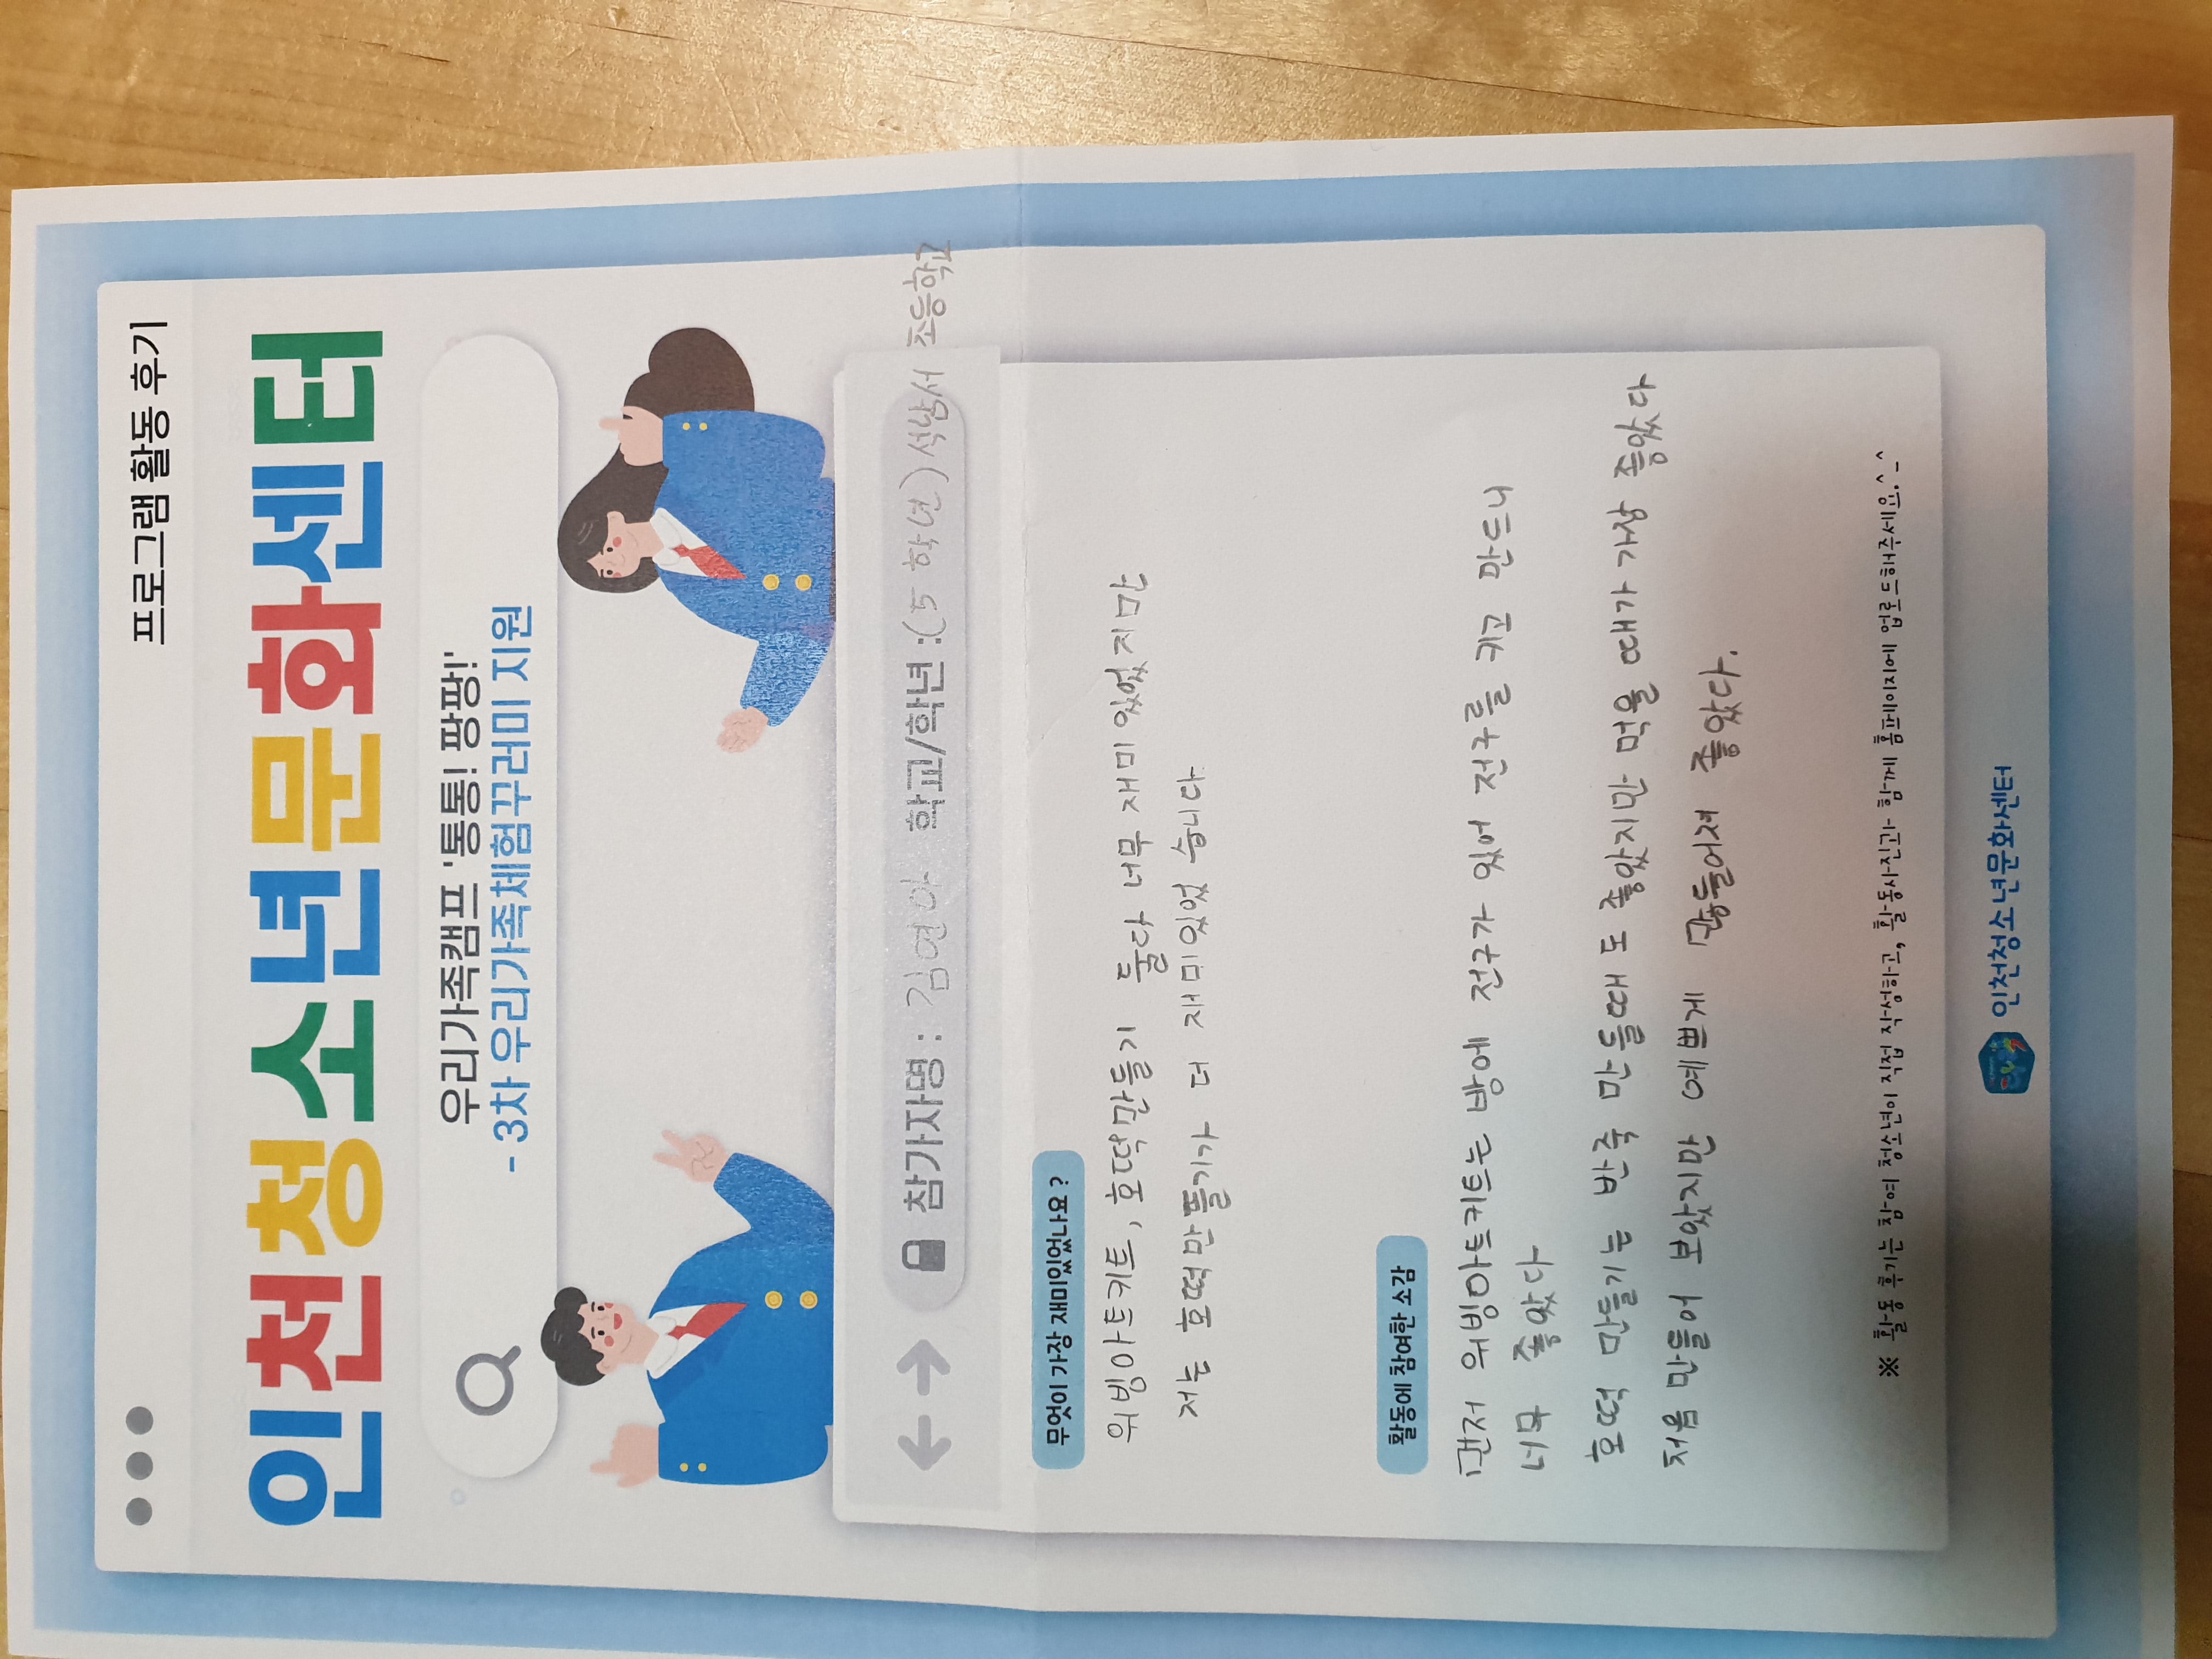 프로그램 활동 후기
인천청소년문화센터
우리가족캠프 '통통! 팡팡!'
- 3차 우리가족체험꾸러미 지원
참가자명 : 김연아 학교/학년 :(5학년) 석남서 초등학교
무엇이 가장 재미있었나요?
위빙아트키트, 호떡만들기 둘다 너무 재미있었지만
저는 호떡만들기가 더 재미있었습니다
활동에 참여한 소감
먼저 위빙아트키트는 방에 전구가 있어 전구를 키고 만드니
너무 좋았다
호떡 만들기는 반죽 만들때도 좋았지만 먹을 때가 가장 좋았다
처음 만들어 보았지만 예쁘게 만들어져 좋았다.
※ 활동 후기는 참여 청소년이 직접 작성하고, 활동사진과 함께 홈페이지에 업로드해주세요.^_^
인천청소년문화센터